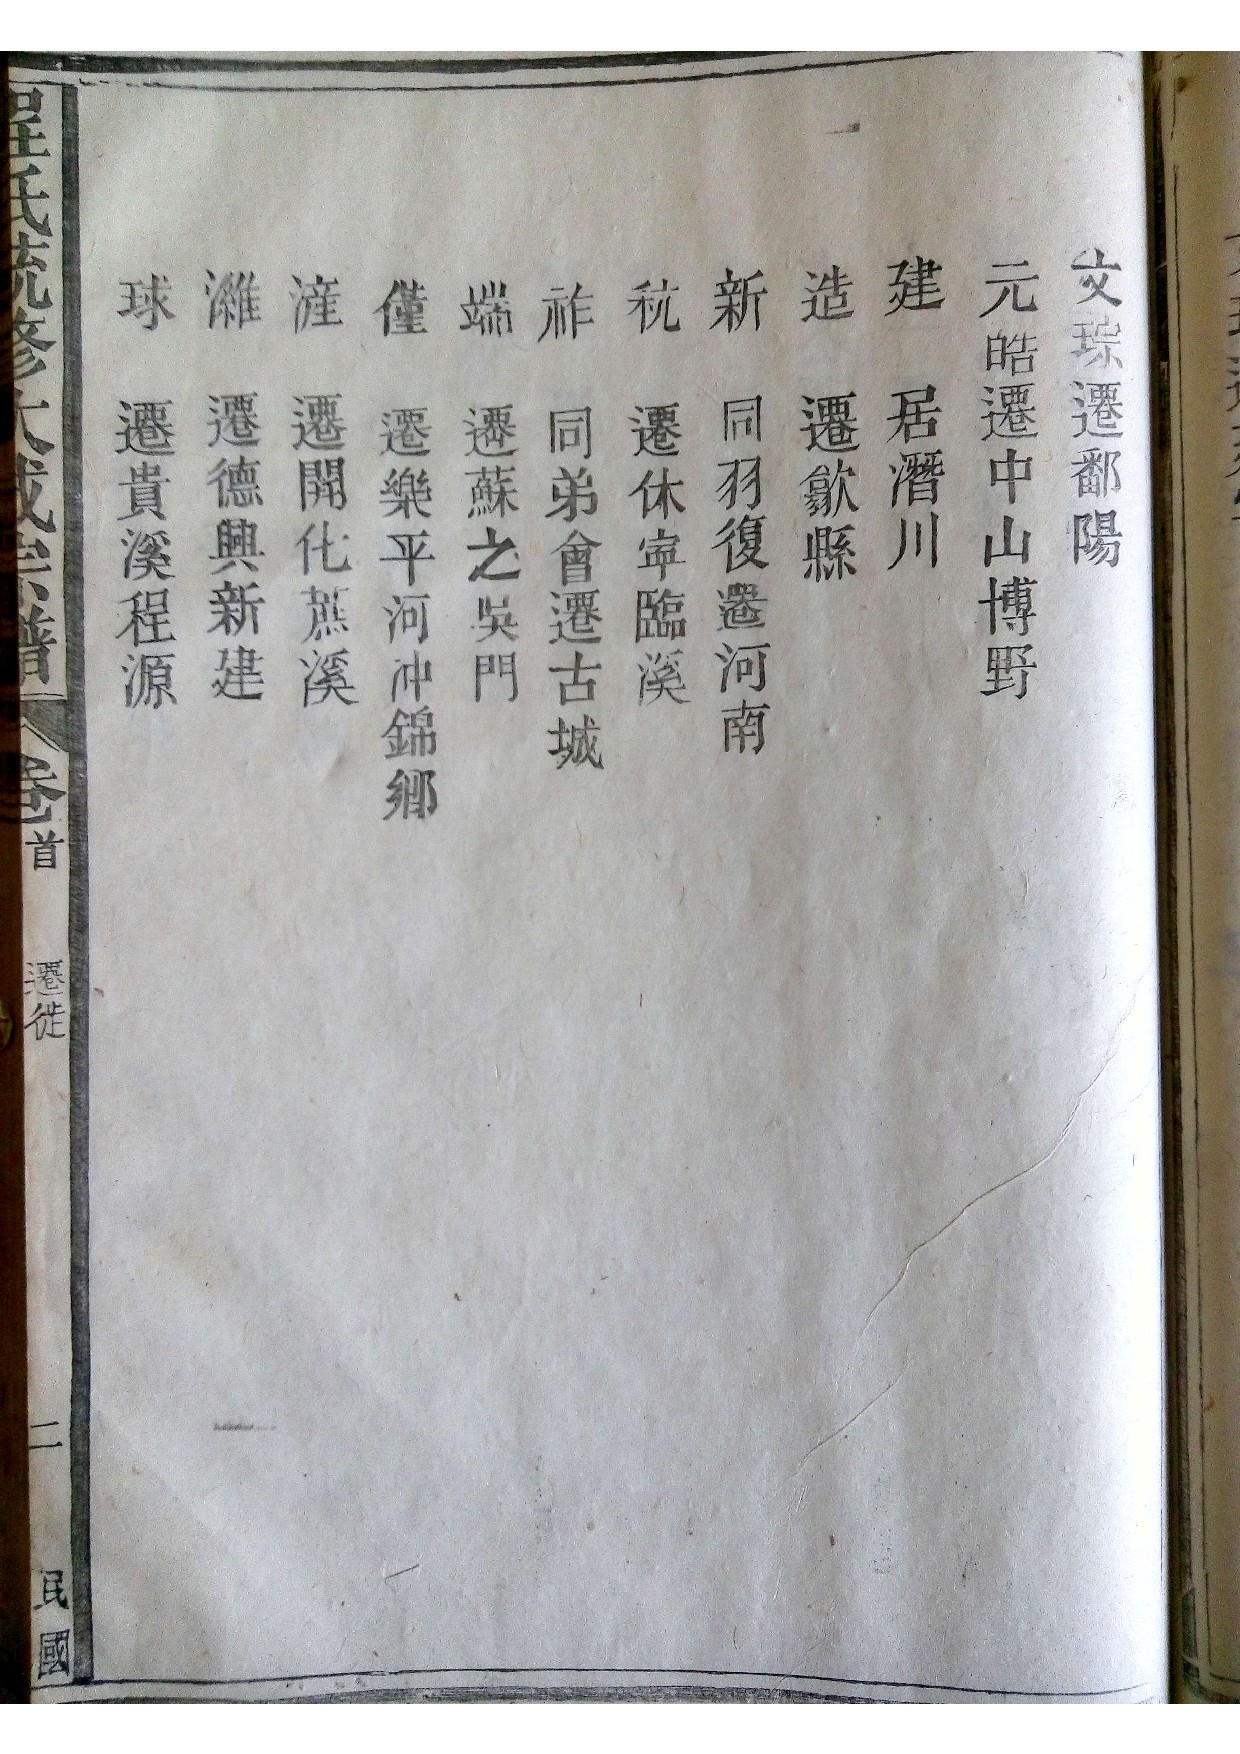 文琮遷鄱陽
元皓遷中山博野
建 居潛川
造 遷歙縣
新 同羽復還河南
秔 遷休寧臨溪
祚 同弟會遷古城
端 遷蘇之吳門
僅 遷樂平河冲錦鄉
滻 遷開化蔗溪
灉 遷德興新建
球 遷貴溪程源
程氏統修大成宗譜 卷首 遷徙 二 民國